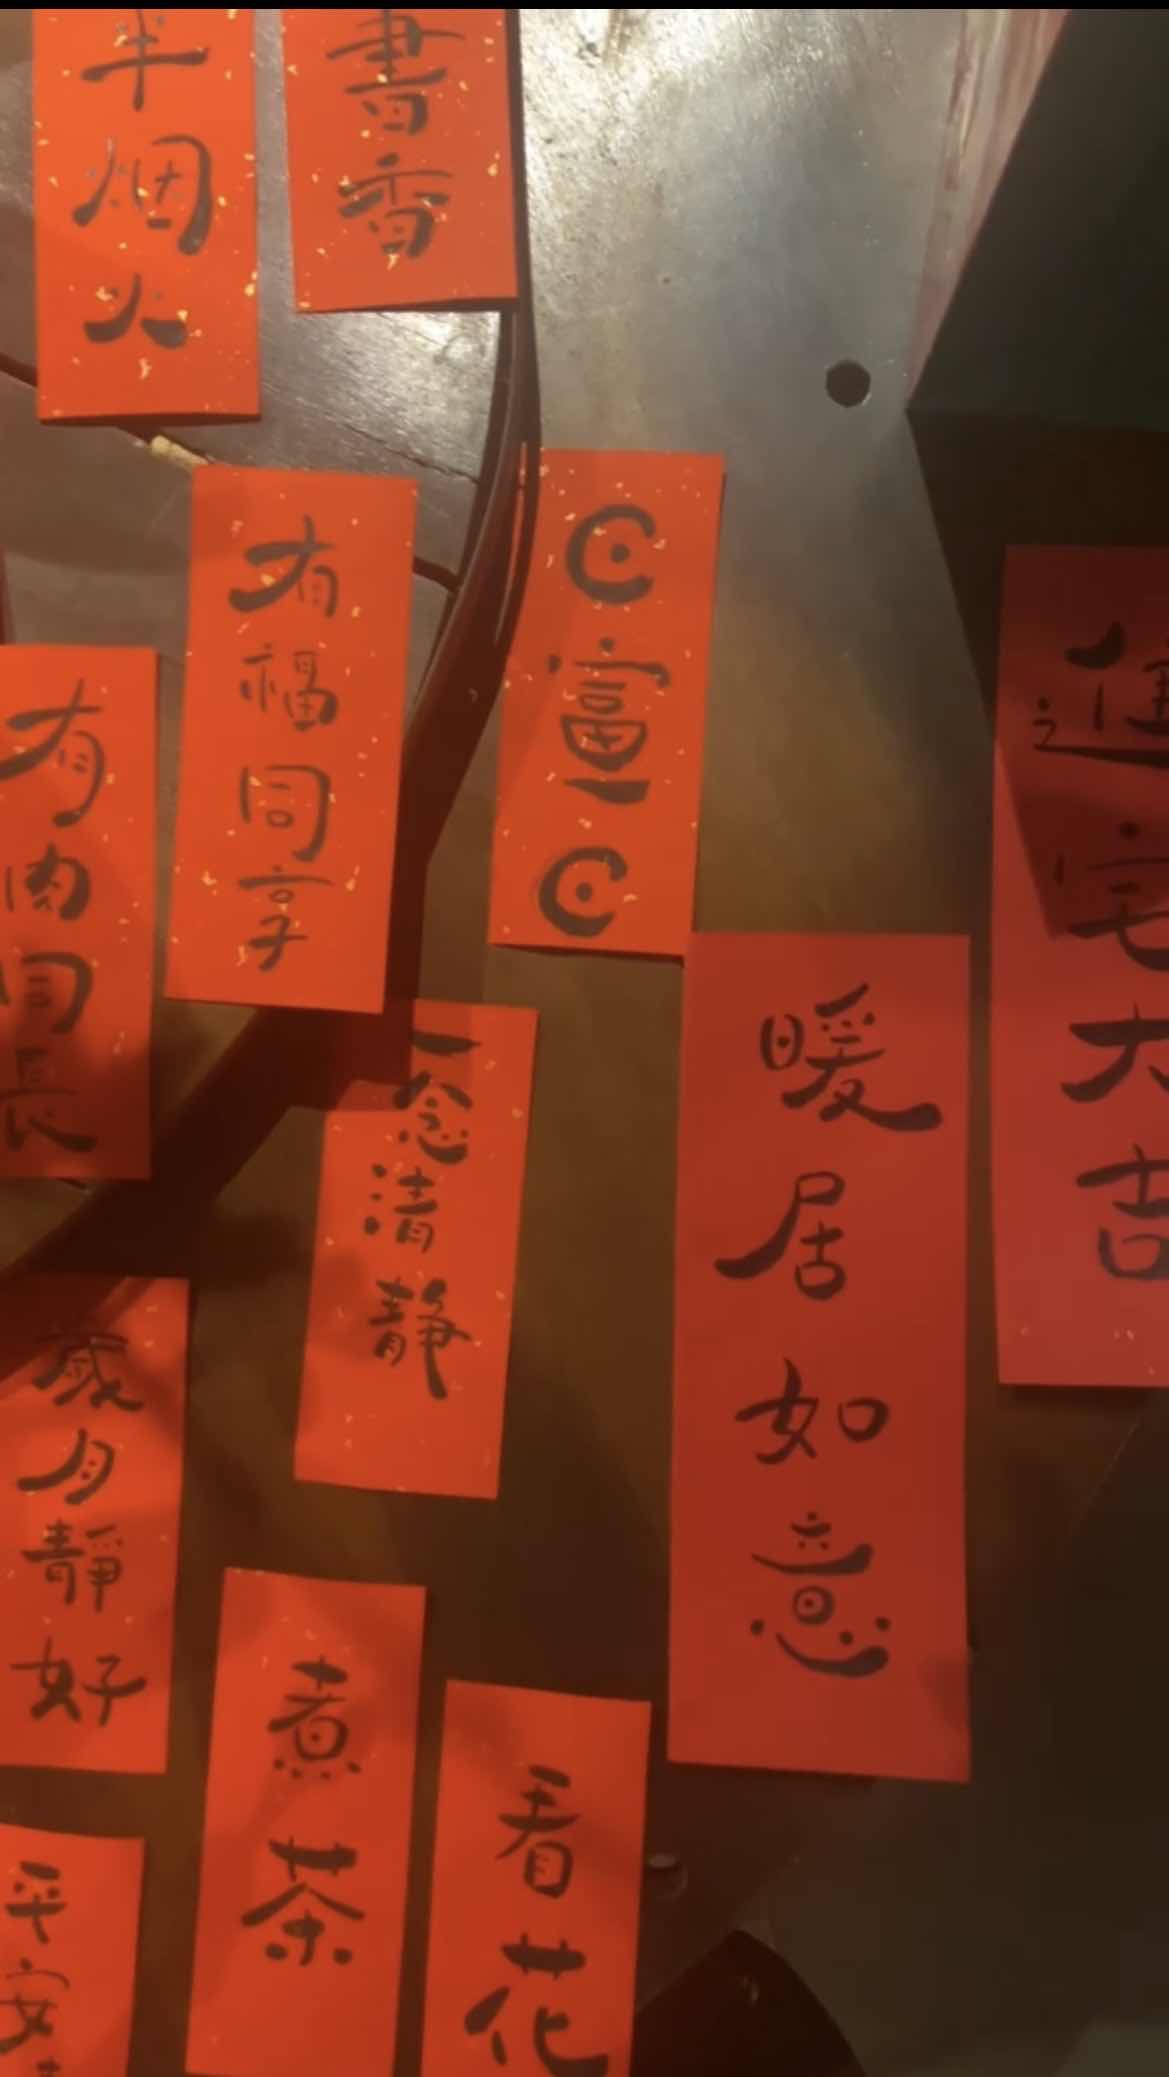 半烟火
書香
有福同享
C富一C
有肉同長
進宅大吉
暖居如意
一念清静
歲月靜好
煮茶
看花
平安